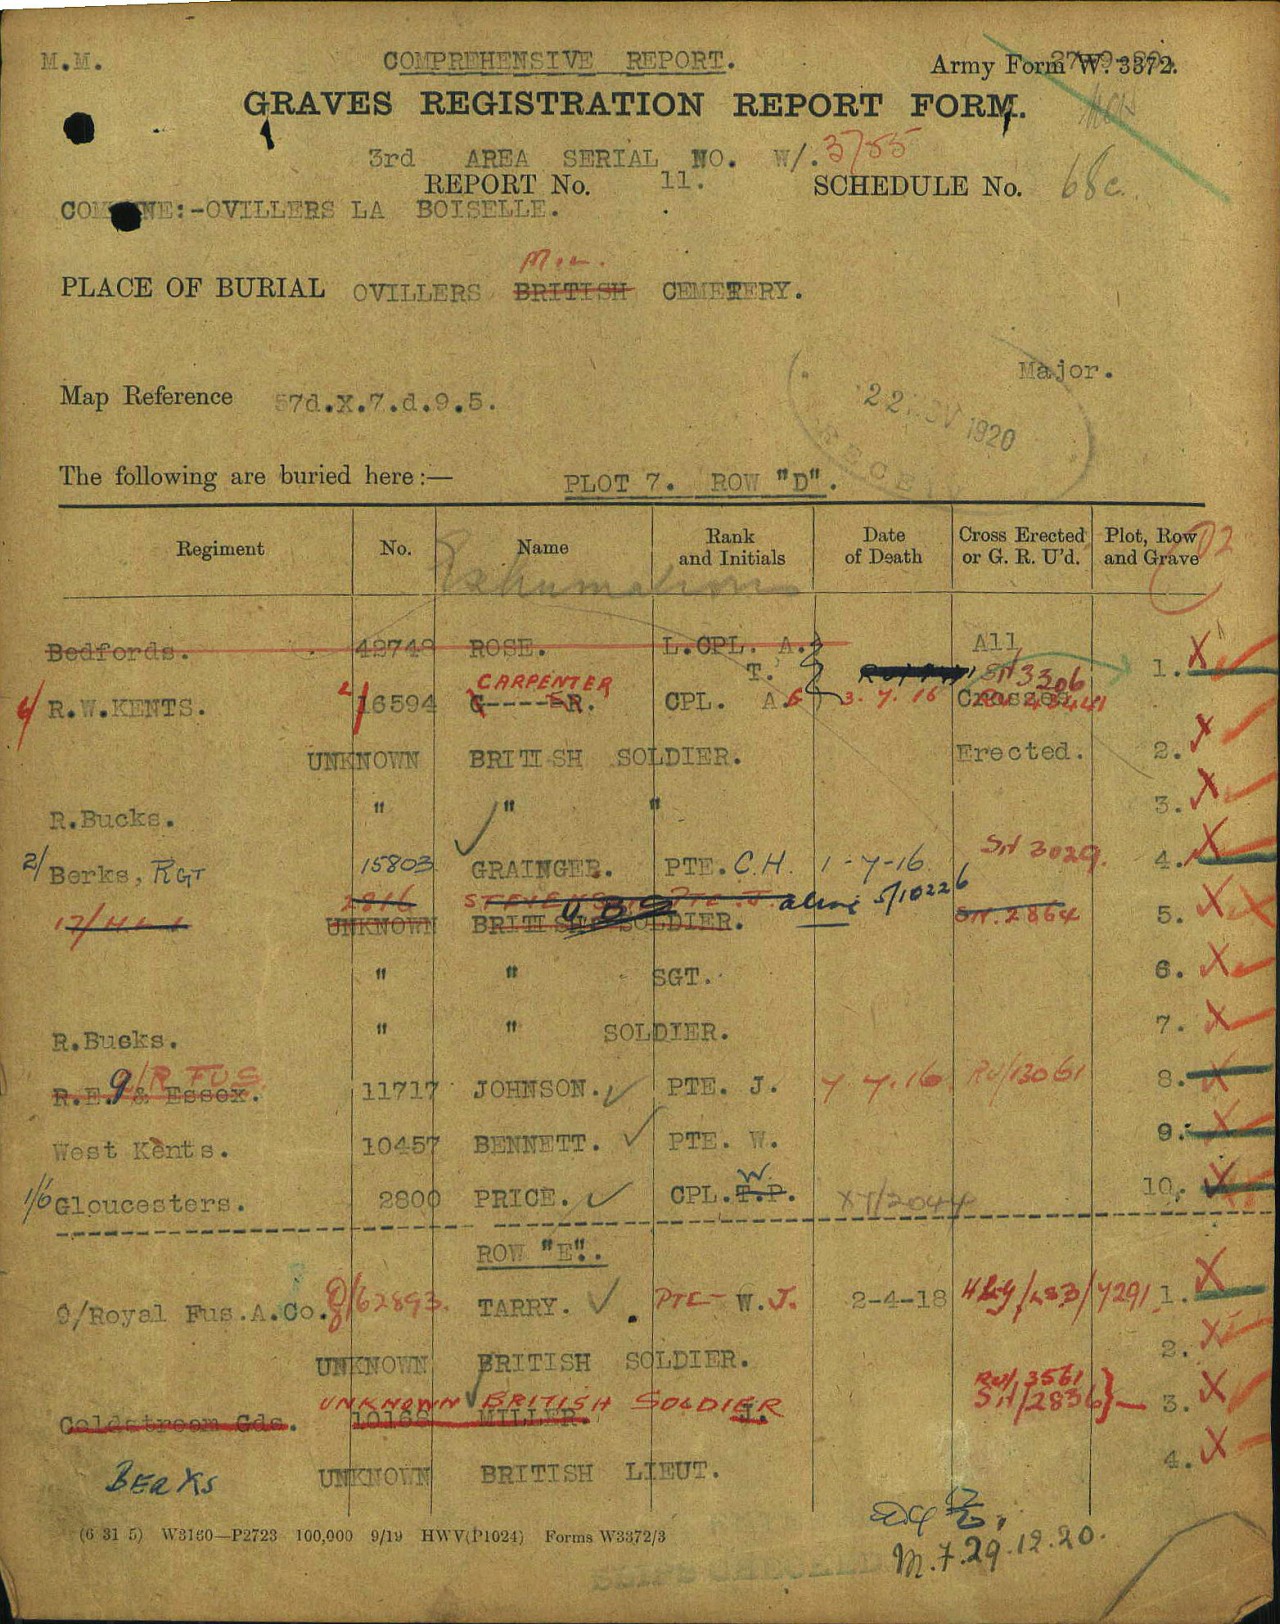 M.M. COMPREHENSIVE REPORT. Army Form W. 3372.
GRAVES REGISTRATION REPORT FORM.
3rd AREA SERIAL NO. W/. 3755
REPORT No. 11. SCHEDULE No. 68c.
COMMUNE:-OVILLERS LA BOISELLE.
Mil.
PLACE OF BURIAL OVILLERS BRITISH CEMETERY.
Major.
Map Reference 57d.X.7.d.9.5.
22 NOV 1920
The following are buried here:— PLOT 7. ROW "D".
Regiment No. Name Rank and Initials Date of Death Cross Erected or G. R. U'd. Plot, Row and Grave
Exhumation
Bedfords. 42748 ROSE. L.CPL. A. All 1.
T. SH 3306
CARPENTER
R.W.KENTS. 16594 G----ER. CPL. A 3.7.16 Crosses
UNKNOWN BRITISH SOLDIER. Erected. 2.
R.Bucks. " " " 3.
2/ Berks, RGT 15803 GRAINGER. PTE. C.H. 1-7-16 SH 3029. 4.
2816 STEVENS PTE. J. alive 5/10226
UNKNOWN BRITISH SOLDIER. SH.2864 5.
" " SGT. 6.
R.Bucks. " " SOLDIER. 7.
9/R FUS
R.E. & Essex. 11717 JOHNSON. PTE. J. 7.7.16 RU/13061 8.
West Kents. 10457 BENNETT. PTE. W. 9.
W
1/6 Gloucesters. 2800 PRICE. CPL. T.P. XY/2044 10.
ROW "E".
9/Royal Fus.A.Co. G/62893. TARRY. PTE W.J. 2-4-18 1.
UNKNOWN BRITISH SOLDIER. 2.
UNKNOWN BRITISH SOLDIER RU/3561 SH/2836 3.
Coldstream Gds. 10166 MILLER. J.
Berks UNKNOWN BRITISH LIEUT. 4.
(6 31 5) W3160—P2723 100,000 9/19 HWV(P1024) Forms W3372/3
M.F. 29.12.20.